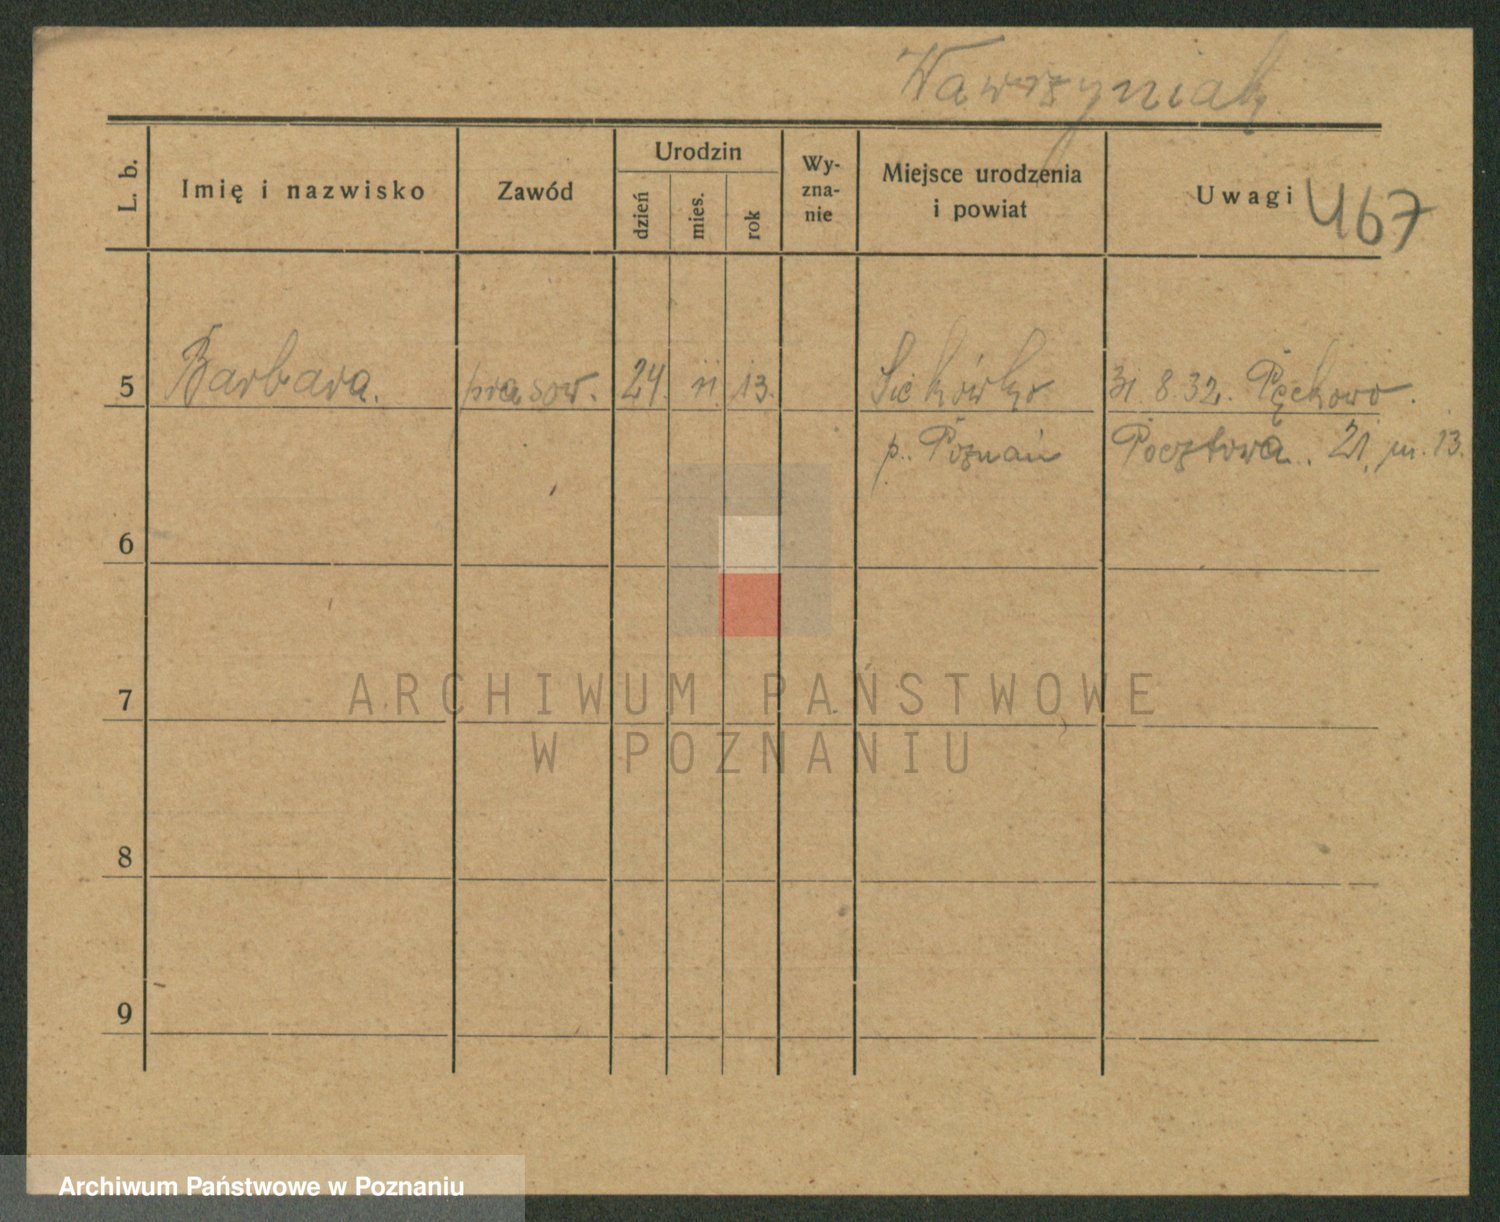 Wawrzyniak
L. b.
Imię i nazwisko
Zawód
Urodzin
dzień
mies.
rok
Wy-
zna-
nie
Miejsce urodzenia
i powiat
Uwagi
467
5 Barbara. prasow. 24. 11. 13. 31.8.32. Pęckowo.
p. Poznań Pocztowa. 21, m. 13.
6
7
8
9
ARCHIWUM PAŃSTWOWE
W POZNANIU
Archiwum Państwowe w Poznaniu